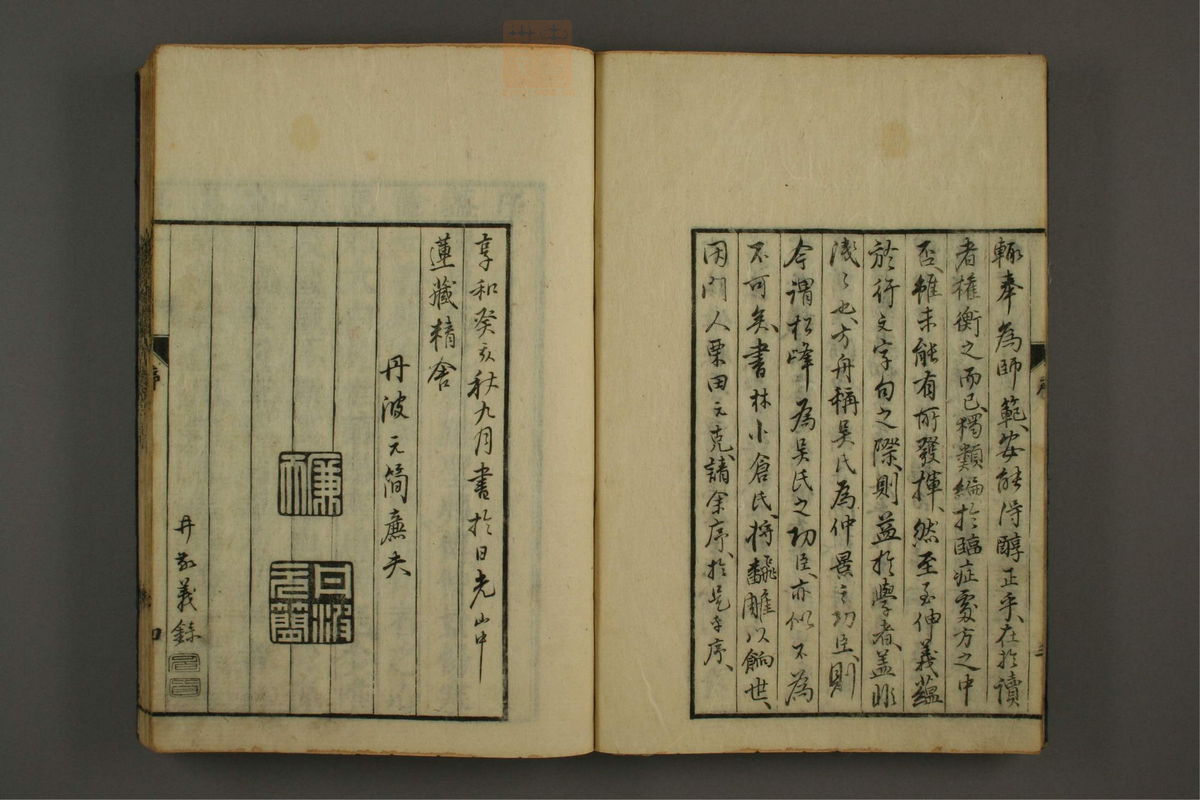 輙奉為師範、安能得醇正乎、在於讀
者權衡之而已、獨類編於臨症處方之中
否、雖未能有所發揮、然至至伸義蘊
於行文字句之際、則益於學者、蓋非
淺々也、方舟稱吳氏為仲景之功臣、則
今謂松峰為吳氏之功臣、亦似不為
不可矣、書林小倉氏、將飜雕以餉世、
因門人栗田元克請余序、於是乎序、
三
享和癸亥秋九月書於日光山中
蓮藏精舍
丹波元簡廉夫
廉夫
丹波元簡
序
四